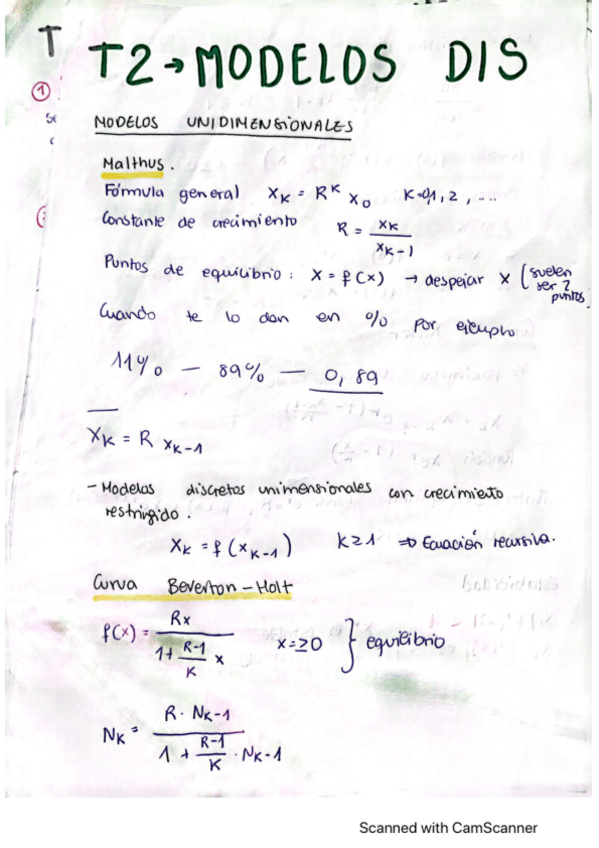 T
T2→MODELOS DIS
1
MODELOS UNIDIMENSIONALES
Malthus.
Fórmula general X_K = R^K X_0 K=0,1,2,....
Constante de crecimiento R = X_K / X_K-1
Puntos de equilibrio: X = f(x) → despejar X (suelen ser 2 puntos)
Cuando te lo dan en % por ejemplo
11% — 89% — 0,89
X_K = R X_K-1
- Modelos discretos unimensionales con crecimiento
restringido.
X_K = f(X_K-1) K≥1 ⇒ Ecuación recursiva.
Curva Beverton-Holt
f(x) = Rx / 1+ R-1/K x x=≥0 } equilibrio
N_K = R·N_K-1 / 1 + R-1/K · N_K-1
Scanned with CamScanner